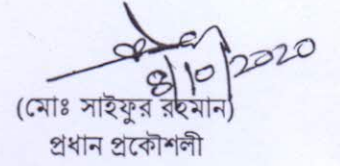 ৪/10/2020
(মোঃ সাইফুর রহমান)
প্রধান প্রকৌশলী